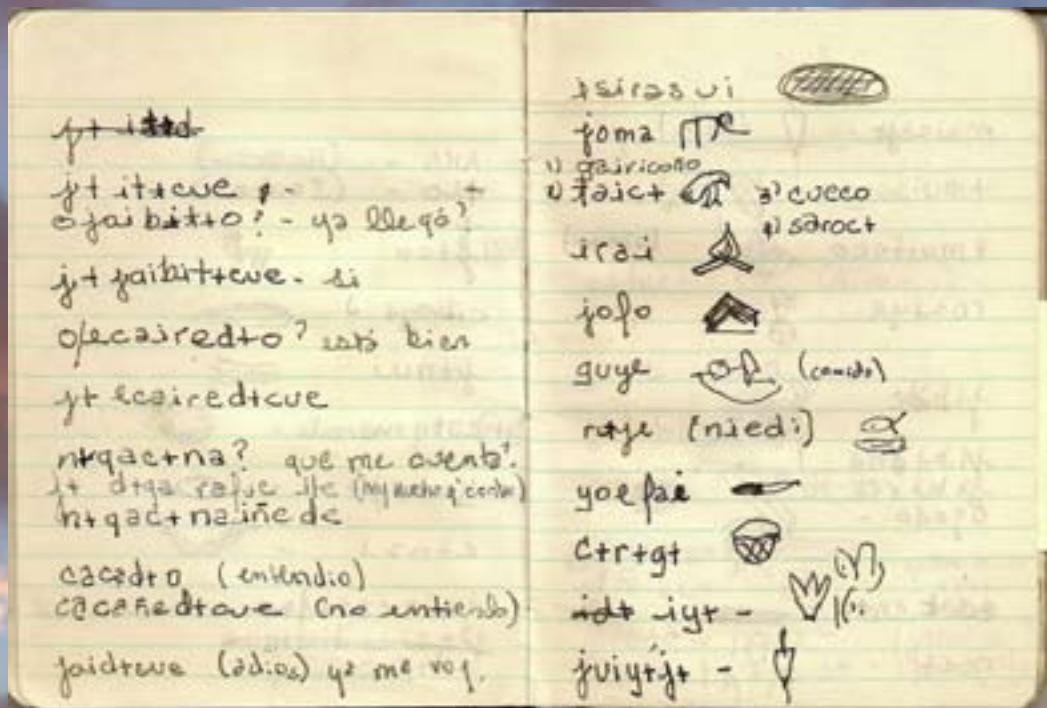 jt ittcue
ojaibitto? - ya llegó?
jt jaibittcue - si
o/ecairedto? está bien
jt ecairedtcue
ntgactna? que me cuenta?
jt dtga rafue ite
ntgactnaiñede
cacadto (entendio)
cacañedtcue (no entiendo)
jaidtcue (adios) ya me voy.
joma
1) gairicoño
2) taict 3) cueco
4) saroct
irai
jofo
guye (comida)
rtje (niedi)
yoefai
ctrtgt
idt iyt -
juiytjt -